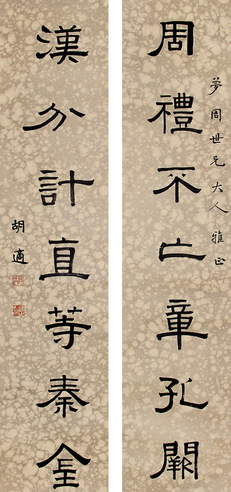 夢周世兄大人 雅正
周禮不亡章孔闕
漢分計直等秦金
胡適